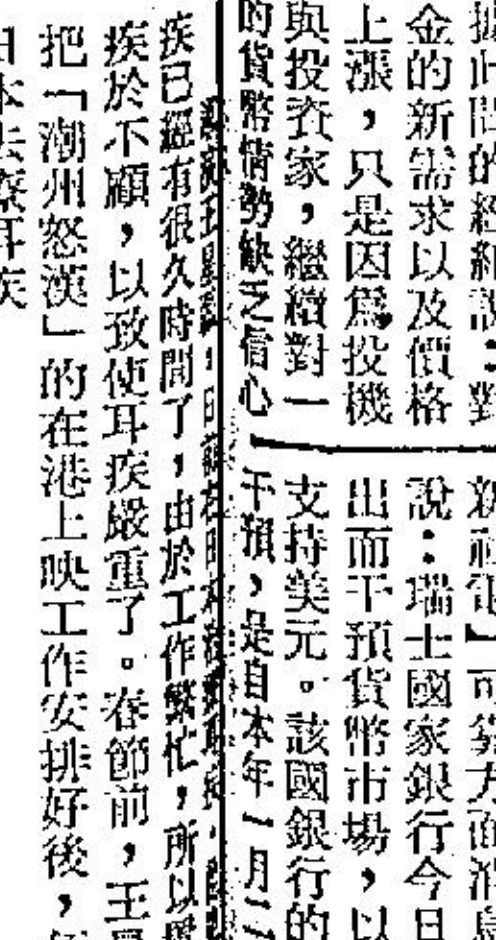 的經紀說：對
金的新需求以及價格
上漲，只是因爲投機
與投資家，繼續對一
的貨幣情勢缺乏信心
社電」可靠方面消息
說：瑞士國家銀行今日
出而干預貨幣市場，以
支持美元。該國銀行的
干預，是自本年一月二
疾已經有很久時間了，由於工作繁忙，所以
疾於不顧，以致使耳疾嚴重了。春節前，王
把「潮州怒漢」的在港上映工作安排好後，
本去察耳疾